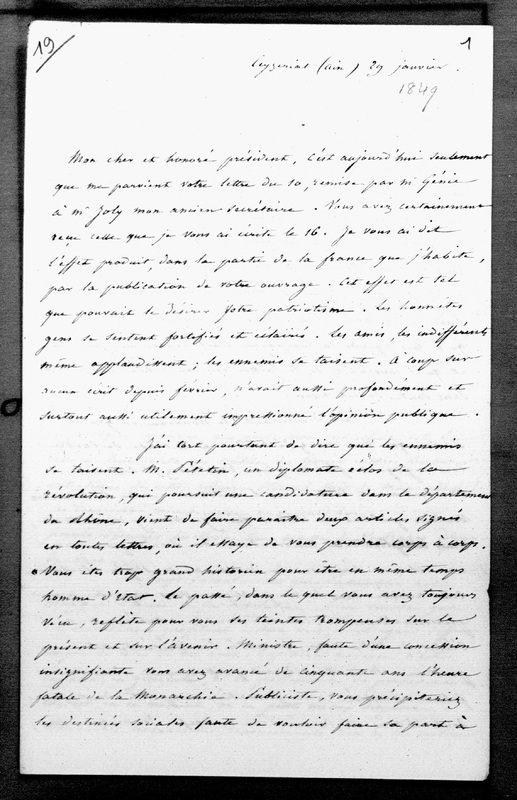 19
1
Ceyzeriat (Ain) 29 janvier.
1849
Mon cher et honoré président, C'est aujourd'hui seulement
que me parvient votre lettre du 10, remise par Mr Génie
à Mr Joly mon ancien secrétaire. Vous avez certainement
reçu celle que je vous ai écrite le 16. Je vous ai dit
l'effet produit, dans la partie de la france que j'habite,
par la publication de votre ouvrage. Cet effet est tel
que pouvait le désirer votre patriotisme. Les honnêtes
gens se sentent fortifiés et éclairés. Les amis, les indifférents
même applaudissent; les ennemis se taisent. à coup sur
aucun écrit depuis février, n'avait aussi profondément et
surtout aussi utilement impressionné l'opinion publique.
J'ai tort pourtant de dire que les ennemis
se taisent. M. Petetin, un diplomate éclos de la
révolution, qui poursuit une candidature dans le département
du Rhône, vient de faire paraitre deux articles signés
en toutes lettres, où il essaye de vous prendre corps à corps.
Vous êtes trop grand historien pour etre en même temps
homme d'Etat. Le passé, dans le quel vous avez toujours
vécu, reflète pour vous ses teintes trompeuses sur le
présent et sur l'avenir. Ministre, faute d'une concession
insignifiante vous avez avancé de cinquante ans l'heure
fatale de la Monarchie. Publiciste, vous précipiteriez
les destinées sociales faute de vouloir faire sa part à